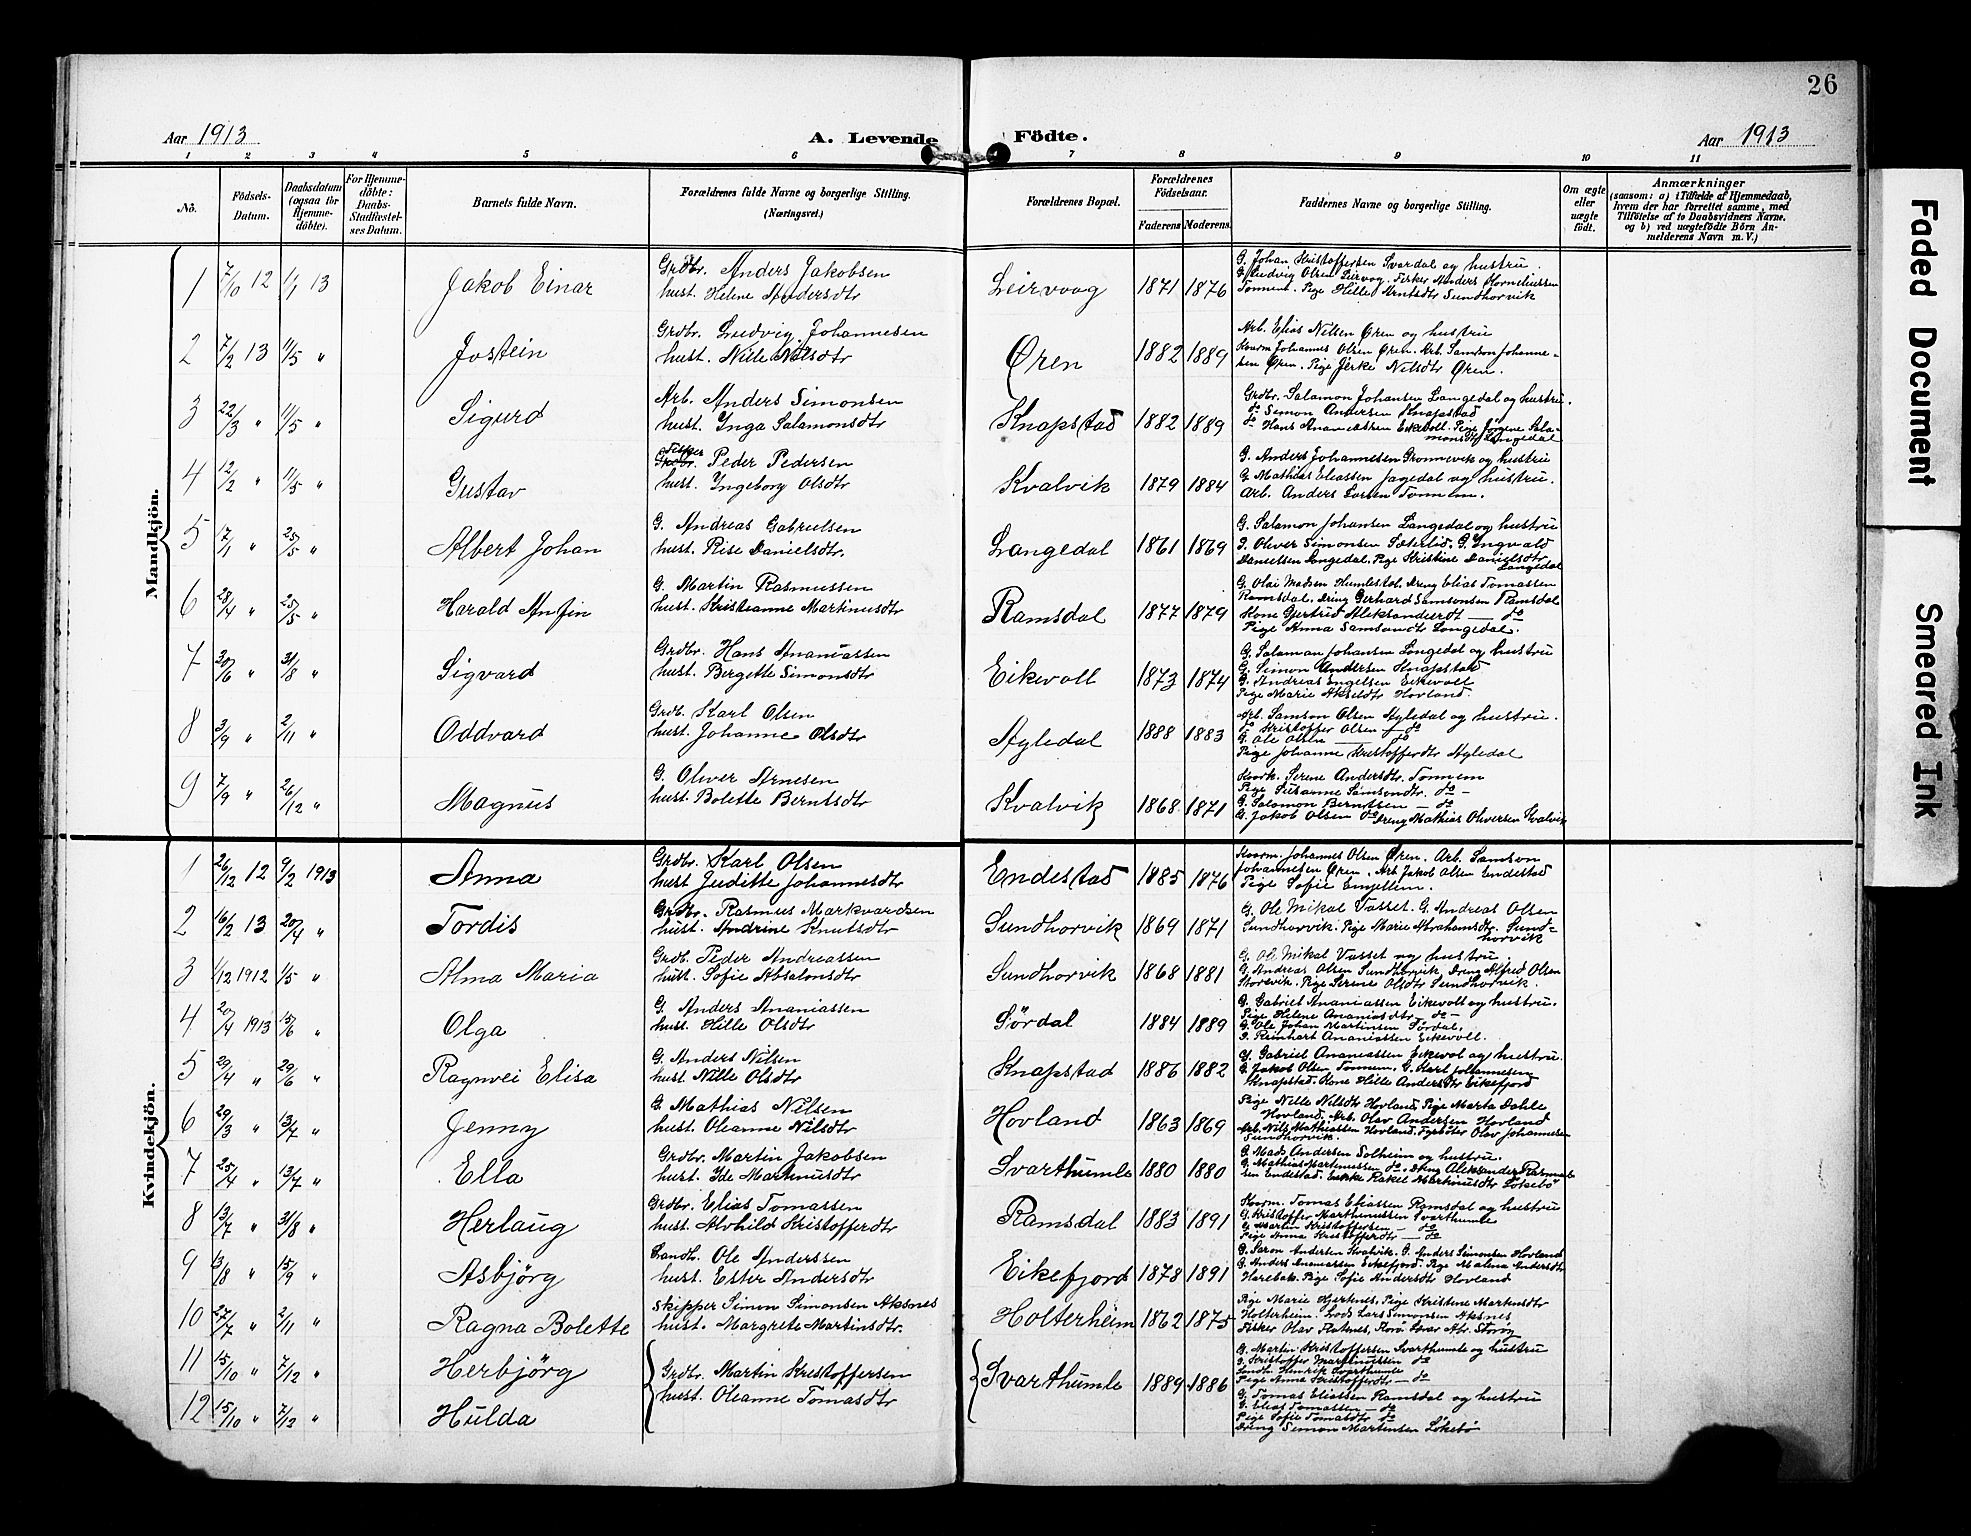 26
Aar 1913
A. Levende Födte.
Aar 1913
1 2 3 4 5 6 7 8 9 10 11
No.
Födsels-Datum.
Daabsdatum (ogsaa for Hjemme-döbte).
For Hjemme-döbte: Daabs-Stadfæstel-ses Datum.
Barnets fulde Navn.
Forældrenes fulde Navne og borgerlige Stilling.
(Næringsvei.)
Forældrenes Bopæl.
Forældrenes Födselsaar.
Faderens Moderens
Faddernes Navne og borgerlige Stilling.
Om ægte eller uægte födt.
Anmærkninger
(saasom: a) i Tilfælde af Hjemmedaab,
hvem der har forrettet samme, med
Tilföielse af to Daabsvidners Navne.
og b) ved uægtefödte Börn An-
melderens Navn m. V.)
Mandkjön.
1 7/10 12 1/1 13 Jakob Einar Grdbr. Anders Jakobsen
hust. Helene Andersdtr Leirvaag 1871 1876
G. Johan Kristoffersen Svardal og hustru.
G. Ludvig Olsen Leirvag. Fisker Anders Korneliussen
Tonnem. Pige Hille Arntsdtr Sundhorvik
2 7/2 13 11/5 " Jostein Grdbr. Ludvig Johannesen
hust. Nille Nilsdtr Øren 1882 1889
Arb. Elias Nilsen Øren og hustru
Kaarm Johannes Olsen Øren. Arb. Samson Johanne-
sen Øren. Pige Jerke Nilsdtr Øren.
3 22/3 " 11/5 " Sigurd Arb. Anders Simonsen
hust. Inga Salamonsdtr Knapstad 1882 1889
Grdbr. Salamon Johansen Langedal og hustru.
do Simon Andersen Knapstad
do Hans Ananiassen Eikevoll. Pige Jørgene Sala-
monsdtr Langedal
4 12/2 " 11/5 " Gustav Fisker Peder Pedersen
hust. Ingeborg Olsdtr Kvalvik 1879 1884
G. Anders Johannesen Grønnevik og hustru
G. Mathias Eliassen Jagedal og hustru.
Arb. Anders Larsen Tonnem.
5 17/1 " 25/5 " Albert Johan G. Andreas Gabrielsen
hust. Rise Danielsdtr. Langedal 1861 1869
G. Salamon Johansen Langedal og hustru
G. Oliver Simonsen Sæterlid. G. Ingvald
Danielsen Langedal. Pige Kristine Danielsdtr
Langedal
6 28/4 " 25/5 " Harald Anfin G. Martin Rasmussen
hust. Kristianne Martinusdtr Ramsdal 1877 1879
G. Olai Madsen Humlestøl. Dreng Elias Tomassen
Ramsdal. Dreng Gerhard Samsonsen Ramsdal
Kone Gjertrud Aleksandersdt — do
Pige Anna Samsonsdtr Langedal.
7 20/6 " 31/8 " Sigvard Grdbr. Hans Ananiassen
hust. Bergette Simonsdtr Eikevoll 1873 1874
G. Salaman Johansen Langedal og hustru
G. Simon Andersen Knapstad
G. Andreas Engelsen Eikevoll
Pige Marie Akseldtr Hovland.
8 3/9 " 2/11 " Oddvard Grdb. Karl Olsen
hust. Johanne Olsdtr Hyledal 1888 1883
Arb. Samson Olsen Hyledal og hustru.
do Kristoffer Olsen — do
G. Ole Olsen — do
Pige Johanne Kristofferdtr Hyledal
9 7/9 " 26/12 " Magnus G. Oliver Arnesen
hust. Bolette Berntsdtr Kvalvik 1868 1871
Kaark. Serene Andersdtr. Tonnem
Pige Susanne Samsondtr. do -
G. Salamon Berntsen — do
G. Jakob Olsen do Dreng Mathias Oliversen Kvalvik
Kvindekjön.
1 26/12 12 9/2 1913 Anna Grdbr. Karl Olsen
hust Juditte Johannesdtr Endestad 1885 1876
Kaarm. Johannes Olsen Øren. Arb. Samson
Johannesen Øren. Arb Jakob Olsen Endestad
Pige Sofie
2 16/2 13 20/4 " Tordis Grdbr. Rasmus Markvardsen
hust. Andrine Knutsdtr Sundhorvik 1869 1871
G. Ole Mikal Vasset. G. Andreas Olsen
Sundhorvik. Pige Marie Abrahamsdtr. Sund-
horvik
3 1/12 1912 1/5 " Alma Maria Grdb. Peder Andreassen
hust. Sofie Absalonsdtr Sundhorvik 1868 1881
G. Ole Mikal Vasset og hustru
G. Andreas Olsen Sundhorvik, Dreng Alfred Olsen
Storevik. Pige Serene Olsdtr Sundhorvik.
4 20/4 1913 15/6 " Olga G. Anders Ananiassen
hust. Hille Olsdtr Sørdal 1884 1889
G. Gabriel Ananiassen Eikevoll og hustru.
Pige Helene Ananiasdtr — do -
G. Ole Johan Martinsen Sørdal.
G. Reinhart Ananiassen Eikevoll.
5 29/4 " 29/6 " Ragnvei Elisa G. Anders Nilsen
hust. Nille Olsdtr Knapstad 1886 1882
G. Gabriel Ananiassen Eikevol og hustru.
G. Jakob Olsen Tonnem. G. Karl Johannesen
Knapstad. Kone Hille Andersdtr Eikefjord
6 29/3 " 13/7 " Jenny G. Mathias Nilsen
hust. Oleanne Nilsdtr Hovland 1863 1869
Pige Nille Nilsdtr Hovland. Pige Marta Dahle
Hovland. Arb. Olav Andersen Hovland
Arb. Nils Mathiassen Hovland. Fyrbøter Olav Johannesen
Sundhorvik.
7 25/4 " 13/7 " Ella Grdbr. Martin Jakobsen
hust. Ide Martinusdtr Svarthumle 1880 1880
G. Mads Andersen Solheim og hustru.
G. Mathias Martinussen do. Dreng Aleksander Rasmus-
sen Endestad. Enkke Rakel Martinusdtr Løkebø
8 13/7 " 31/8 " Herlaug Grdbr. Elias Tomassen
hust. Alvhild Kristofferdtr Ramsdal 1883 1891
Kaarm. Tomas Eliassen Ramsdal og hustru
G. Kristoffer Marthinussen Svarthumle
G. Martin Kristoffersen — do
Pige Anna Kristofferdtr — do
9 13/8 " 15/9 " Asbjörg Landh. Ole Anderssen
hust. Ester Andersdtr Eikefjord 1878 1891
G. Saron Andersen Kvalvik. G. Anders Simonsen Hovland
G. Anders Ananiassen Eikefjord. Pige Malena Andersdtr
Harebak. Pige Sofie Andersdtr Hovland
10 27/7 " 2/11 " Ragna Bolette Skipper Simon Simonsen Aksnes
hust. Margrete Martinsdtr. Holterheim 1862 1875
Pige Marie Hjertenes. Pige Kristene Martensdtr
Holterheim. Lods Lars Simonsen Aksnes
Fisker Olav Flatenes,
11 15/10 " 7/12 " Herbjörg Grdbr. Martin Kristoffersen
hust. Oleanne Tomasdtr Svarthumle 1889 1886
G. Martin Kristoffersen Svarthumle og hustru
G. Kristoffer Marthinussen do
Landh. Henrik Svarthumle
Pige Anna Kristofferdtr — do
12 15/10 " 7/12 " Hulda
G. Tomas Eliassen Ramsdal og hustru
G. Elias Tomassen — do
Pige Sofie Tomasdtr do
Dreng Simon Martensen Løkebø
Faded Document
Smeared Ink